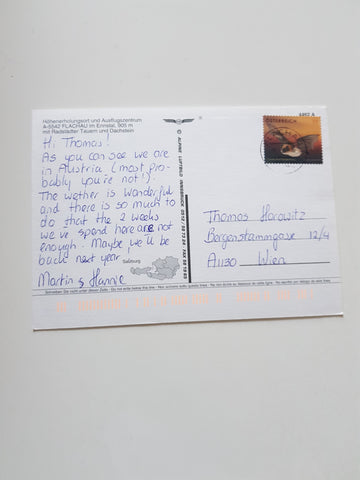 Höhenerholungsort und Ausflugszentrum
A-5542 FLACHAU im Ennstal, 905 m
mit Radstädter Tauern und Dachstein
Hi Thomas!
As you can see we are
in Austria (most pro-
bably you're not!).
The wether is wonderful
and there is so much to
do that the 2 weeks
we've spend here are not
enough. Maybe we'll be
back next year.
Martin & Hannie
Salzburg
© ALPINE LUFTBILD INNSBRUCK
ÖSTERREICH
Thomas Horowitz
Bergenstammgasse 12/4
A1130 Wien
Schreiben Sie nicht unter dieser Zeile